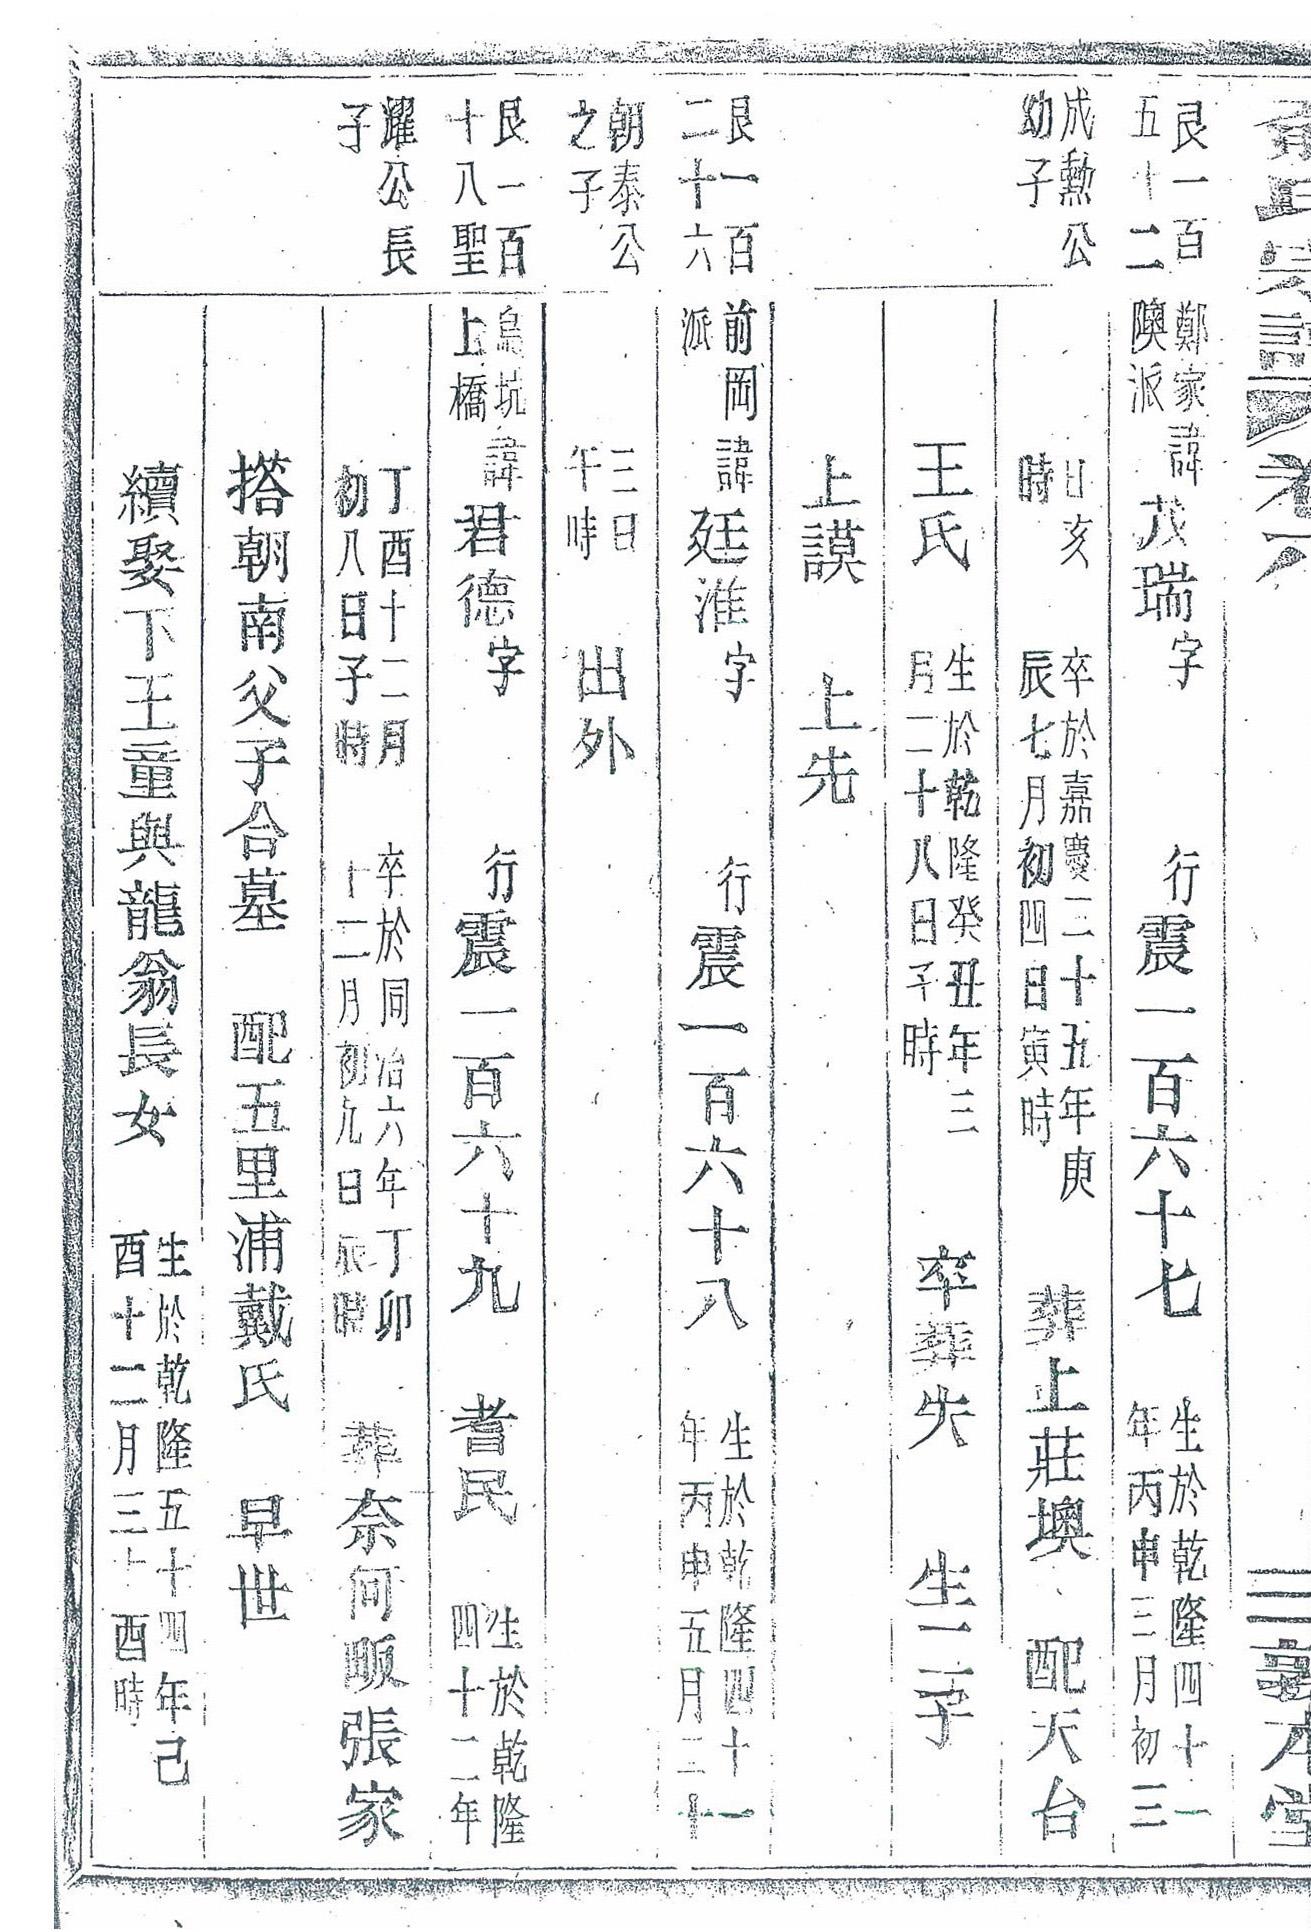 氏宗譜 卷六 三 敦本堂
艮一百
五十二
鄭家
隩派
諱茂瑞字 行震一百六十七
生於乾隆四十一
年丙申三月初三
成勳公
幼子
日亥
時
卒於嘉慶二十五年庚
辰七月初四日寅時
葬上莊墺 配天台
王氏
生於乾隆癸丑年三
月二十八日子時
卒葬失 生二子
上謨 上先
艮一百
二十六
前岡
派
諱廷淮字 行震一百六十八
生於乾隆四十一
年丙申五月二十
朝泰公
之子
三日
午時
出外
艮一百
十八聖
烏坑
上橋
諱君德字 行震一百六十九 耆民
生於乾隆
四十二年
耀公長
子
丁酉十二月
初八日子時
卒於同治六年丁卯
十二月初九日辰時
葬奈何畈張家
搭朝南父子合墓 配五里浦戴氏 早世
續娶下王童與龍翁長女
生於乾隆五十四年己
酉十二月三十酉時